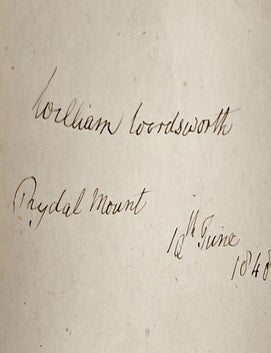 William Wordsworth
Rydal Mount
12th June
1848